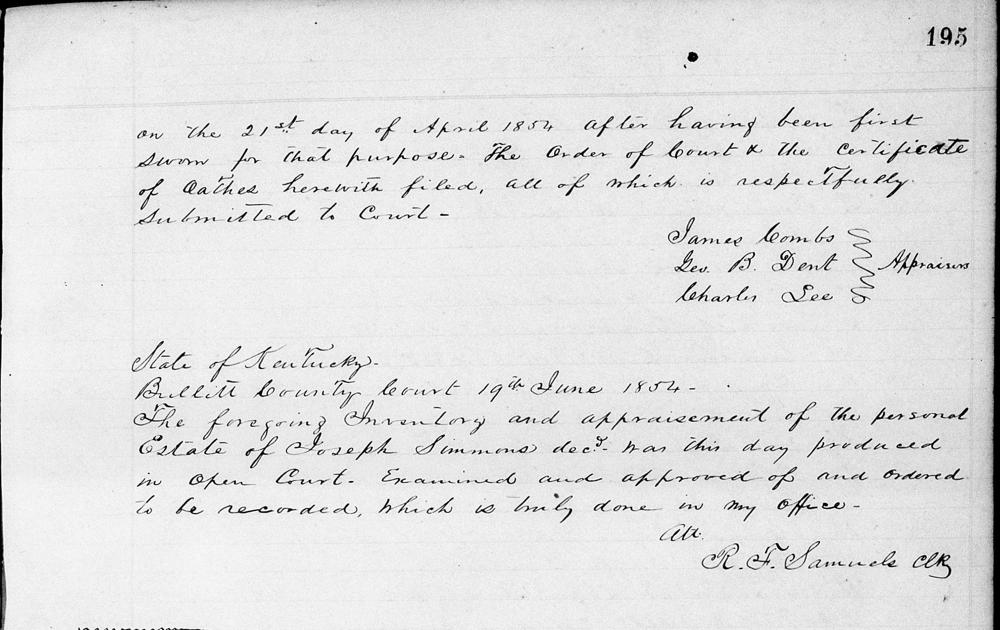 195
on the 21st day of April 1854 after having been first
sworn for that purpose - The Order of Court & the certificate
of Oathes herewith filed, all of which is respectfully
submitted to Court -
James Combs
Geo. B. Dent Appraisers
Charles Lee
State of Kentucky -
Bullitt County Court 19th June 1854 -
The foregoing Inventory and appraisement of the personal
Estate of Joseph Simmons decd - was this day produced
in Open Court - Examined and approved of and ordered
to be recorded, which is truly done in my office -
Att.
R. F. Samuels Clk